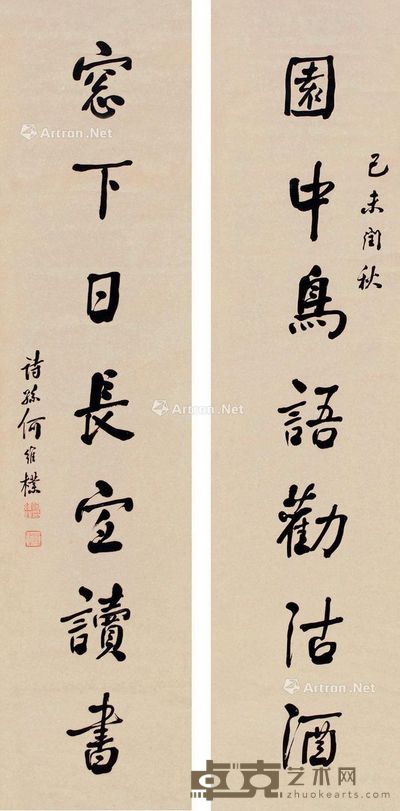 己未閏秋
園中鳥語勸沽酒
窓下日長宜讀書
詩孫何維樸
Artron.Net
Artron.Net
Artron.Net
卓克艺术网
www.zhuokearts.com